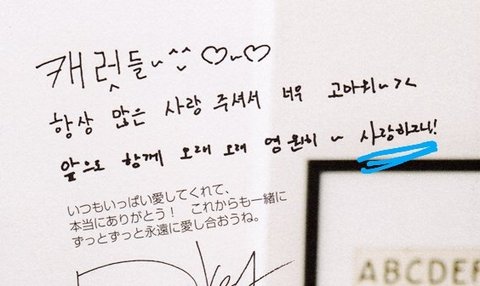 캐럿들~^^ ♡~♡
항상 많은 사랑 주셔서 너무 고마워~><
앞으로 함께 오래 오래 영원히 ~ 사랑하자!
いつもいっぱい愛してくれて、
本当にありがとう！ これからも一緒に
ずっとずっと永遠に愛し合おうね。
ABCDEF